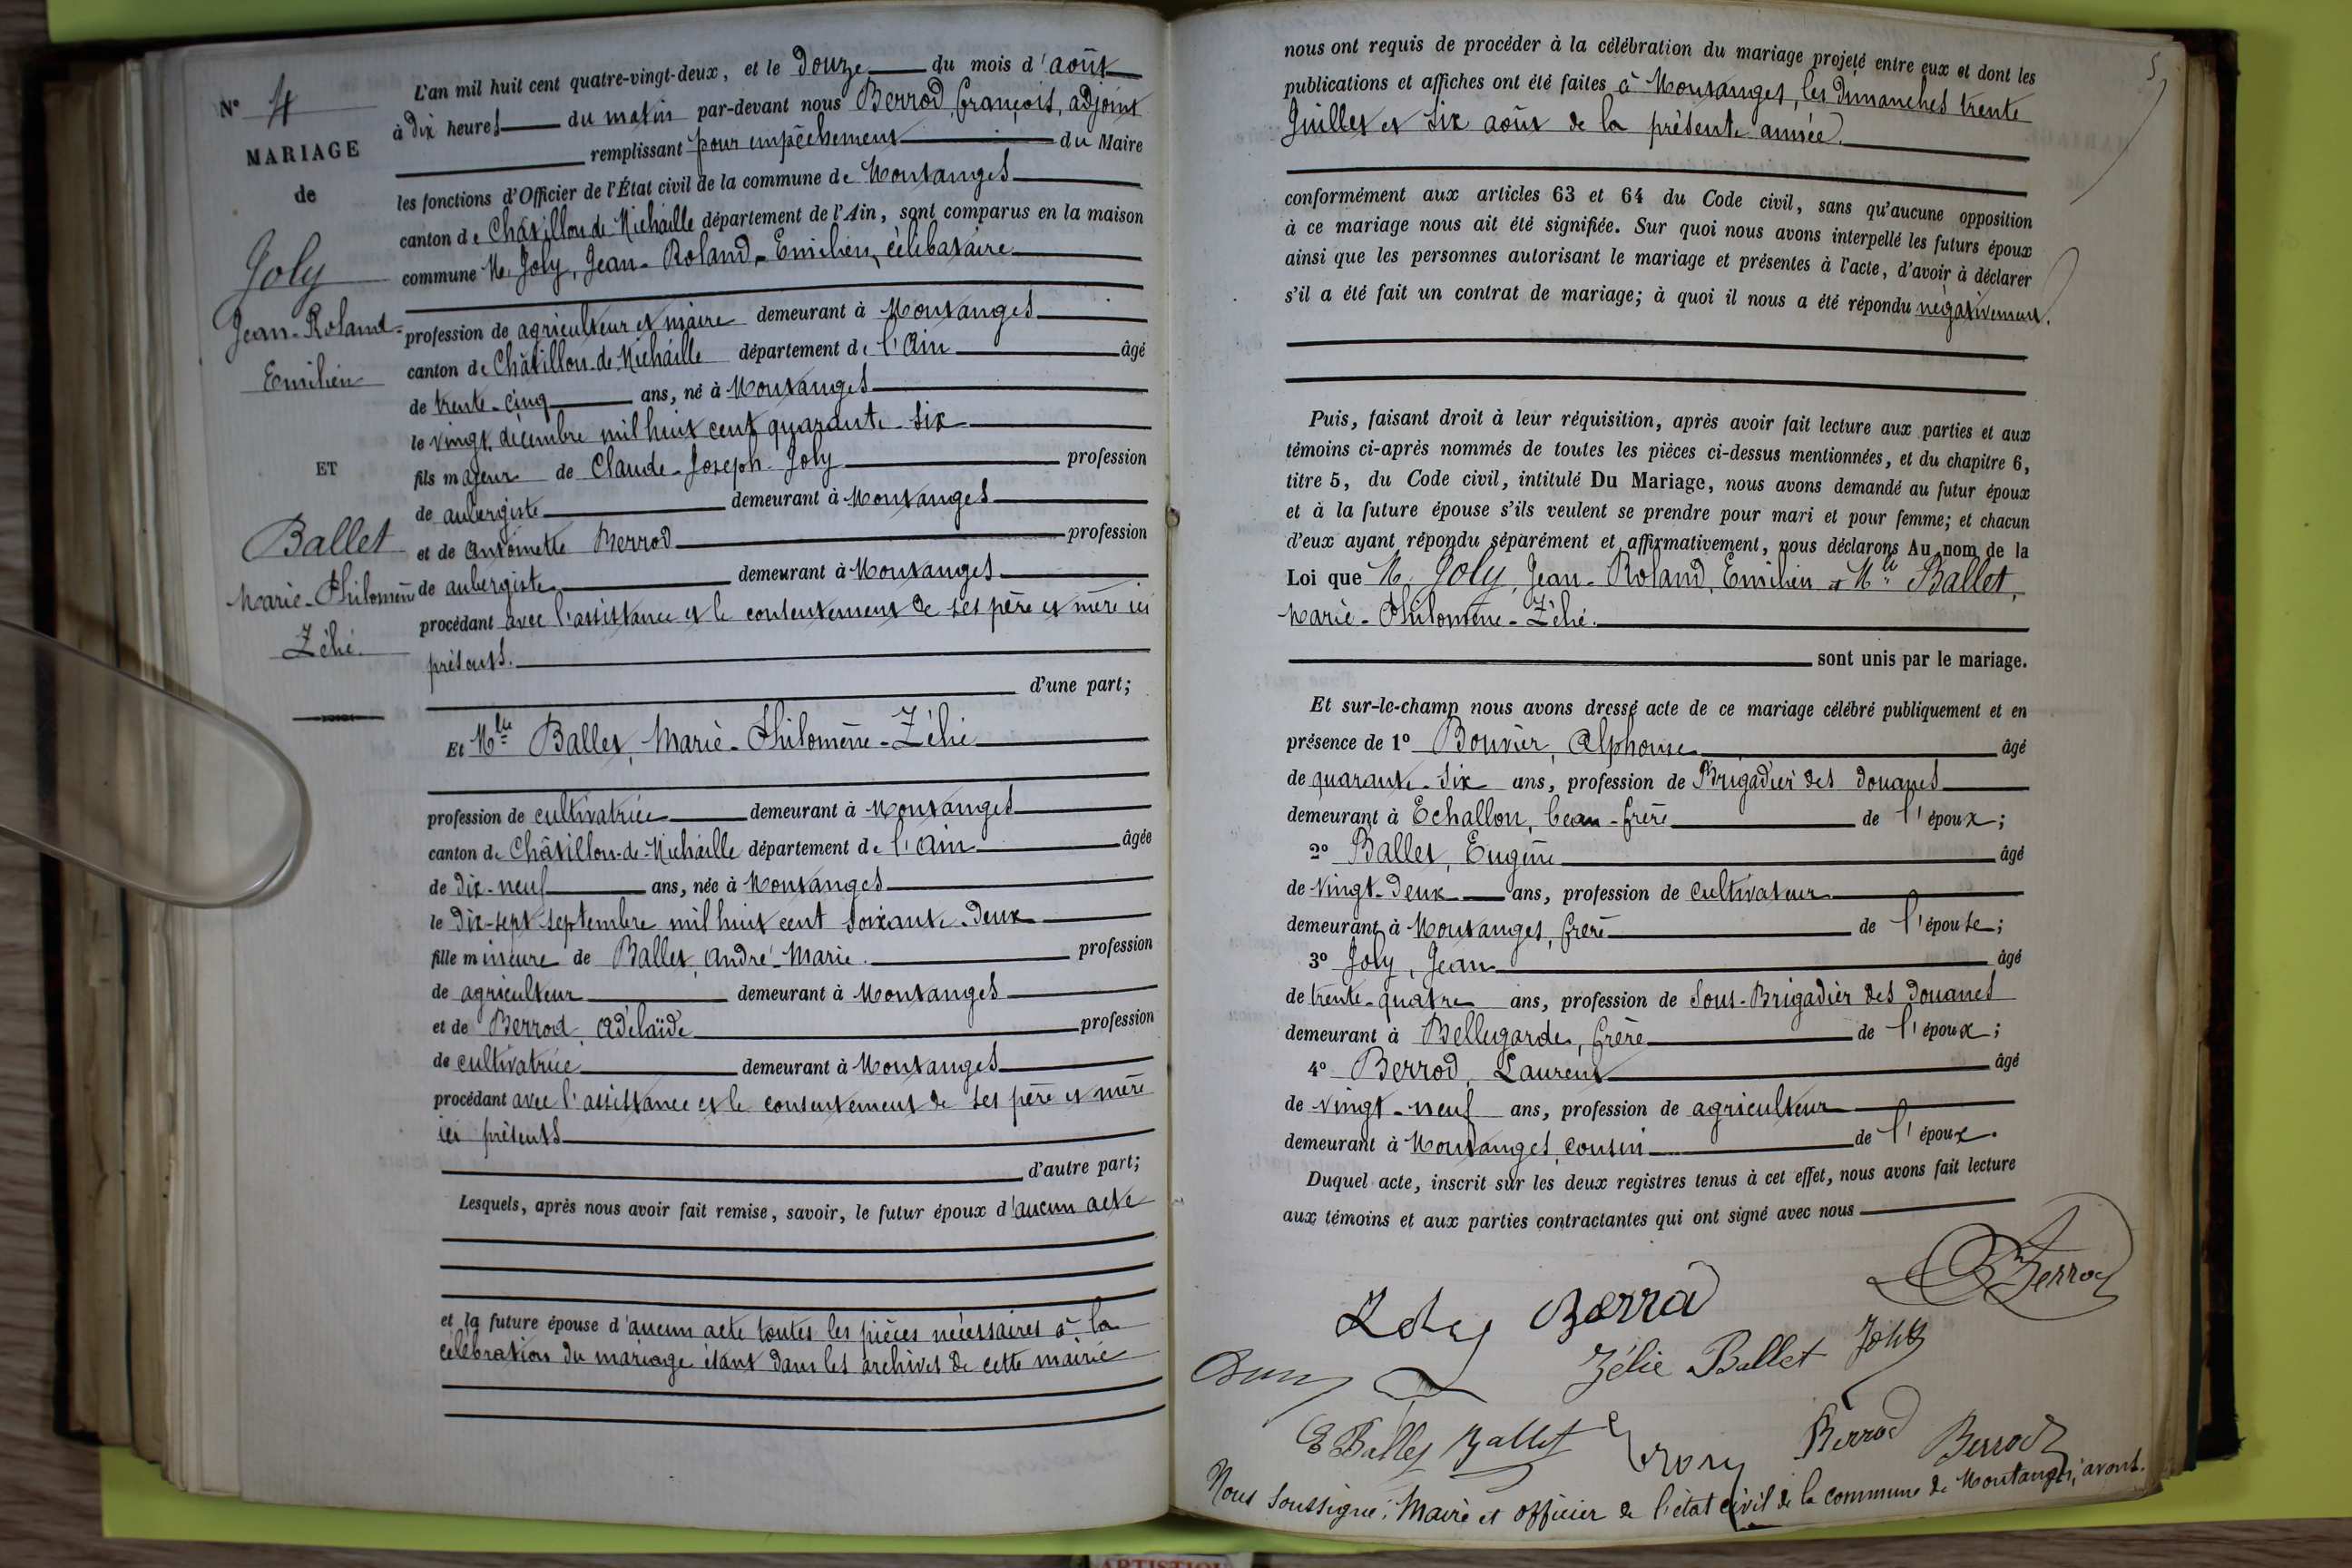 N° 4
MARIAGE
de
Joly
Jean-Roland-
Emilien
ET
Ballet
Marie-Philomène
Zélie
L'an mil huit cent quatre-vingt-deux, et le douze du mois d'août
à dix heures du matin par-devant nous Berrod, François, adjoint
remplissant pour empêchement du Maire
les fonctions d'Officier de l'État civil de la commune de Montanges
canton de Châtillon-de-Michaille département de l'Ain, sont comparus en la maison
commune M. Joly, Jean-Roland-Emilien, célibataire
profession de agriculteur et maire demeurant à Montanges
canton de Châtillon-de-Michaille département de l'Ain âgé
de trente-cinq ans, né à Montanges
le vingt décembre mil huit cent quarante-six
fils majeur de Claude-Joseph Joly profession
de aubergiste demeurant à Montanges
et de Antoinette Berrod profession
de aubergiste demeurant à Montanges
procédant avec l'assistance et le consentement de ses père et mère ici
présents.
d'une part;
Et Mlle Ballet, Marie-Philomène-Zélie
profession de cultivatrice demeurant à Montanges
canton de Châtillon-de-Michaille département de l'Ain âgée
de dix-neuf ans, née à Montanges
le dix-sept septembre mil huit cent soixante-deux
fille mineure de Ballet, André-Marie. profession
de agriculteur demeurant à Montanges
et de Berrod, Adélaïde profession
de cultivatrice demeurant à Montanges
procédant avec l'assistance et le consentement de ses père et mère
ici présents
d'autre part;
Lesquels, après nous avoir fait remise, savoir, le futur époux d'aucun acte
et la future épouse d'aucun acte toutes les pièces nécessaires à la
célébration du mariage étant dans les archives de cette mairie
5
nous ont requis de procéder à la célébration du mariage projeté entre eux et dont les
publications et affiches ont été faites à Montanges, les dimanches trente
Juillet et six août de la présente année.
conformément aux articles 63 et 64 du Code civil, sans qu'aucune opposition
à ce mariage nous ait été signifiée. Sur quoi nous avons interpellé les futurs époux
ainsi que les personnes autorisant le mariage et présentes à l'acte, d'avoir à déclarer
s'il a été fait un contrat de mariage; à quoi il nous a été répondu négativement.
Puis, faisant droit à leur réquisition, après avoir fait lecture aux parties et aux
témoins ci-après nommés de toutes les pièces ci-dessus mentionnées, et du chapitre 6,
titre 5, du Code civil, intitulé Du Mariage, nous avons demandé au futur époux
et à la future épouse s'ils veulent se prendre pour mari et pour femme; et chacun
d'eux ayant répondu séparément et affirmativement, nous déclarons Au nom de la
Loi que M. Joly, Jean-Roland, Emilien et Mlle Ballet,
Marie-Philomène-Zélie.
sont unis par le mariage.
Et sur-le-champ nous avons dressé acte de ce mariage célébré publiquement et en
présence de 1° Bouvier, Alphonse âgé
de quarante-six ans, profession de Brigadier des douanes
demeurant à Echallon, beau-frère de l'époux;
2° Ballet, Eugène âgé
de vingt-deux ans, profession de cultivateur
demeurant à Montanges, frère de l'épouse;
3° Joly, Jean âgé
de trente-quatre ans, profession de Sous-Brigadier des douanes
demeurant à Bellegarde, frère de l'époux;
4° Berrod, Laurent âgé
de vingt-neuf ans, profession de agriculteur
demeurant à Montanges, cousin de l'époux.
Duquel acte, inscrit sur les deux registres tenus à cet effet, nous avons fait lecture
aux témoins et aux parties contractantes qui ont signé avec nous
Joly Berrod Berrod
Zélie Ballet Joly
E Ballet Ballet Berrod Berrod
Nous soussigné, Maire et officier de l'état civil de la commune de Montanges, avons
ARTISTIQU